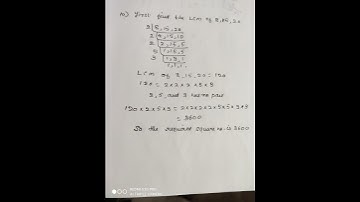 10) First find the LCM of 8, 15, 20
2 | 8, 15, 20
2 | 4, 15, 10
2 | 2, 15, 5
5 | 1, 15, 5
3 | 1, 3, 1
1, 1, 1
LCM of 8, 15, 20 = 120
120 = 2 × 2 × 2 × 5 × 3
2, 5, and 3 has no pair
120 × 2 × 5 × 3 = 2×2×2×2×5×5×3×3
= 3600
So the required square no is 3600